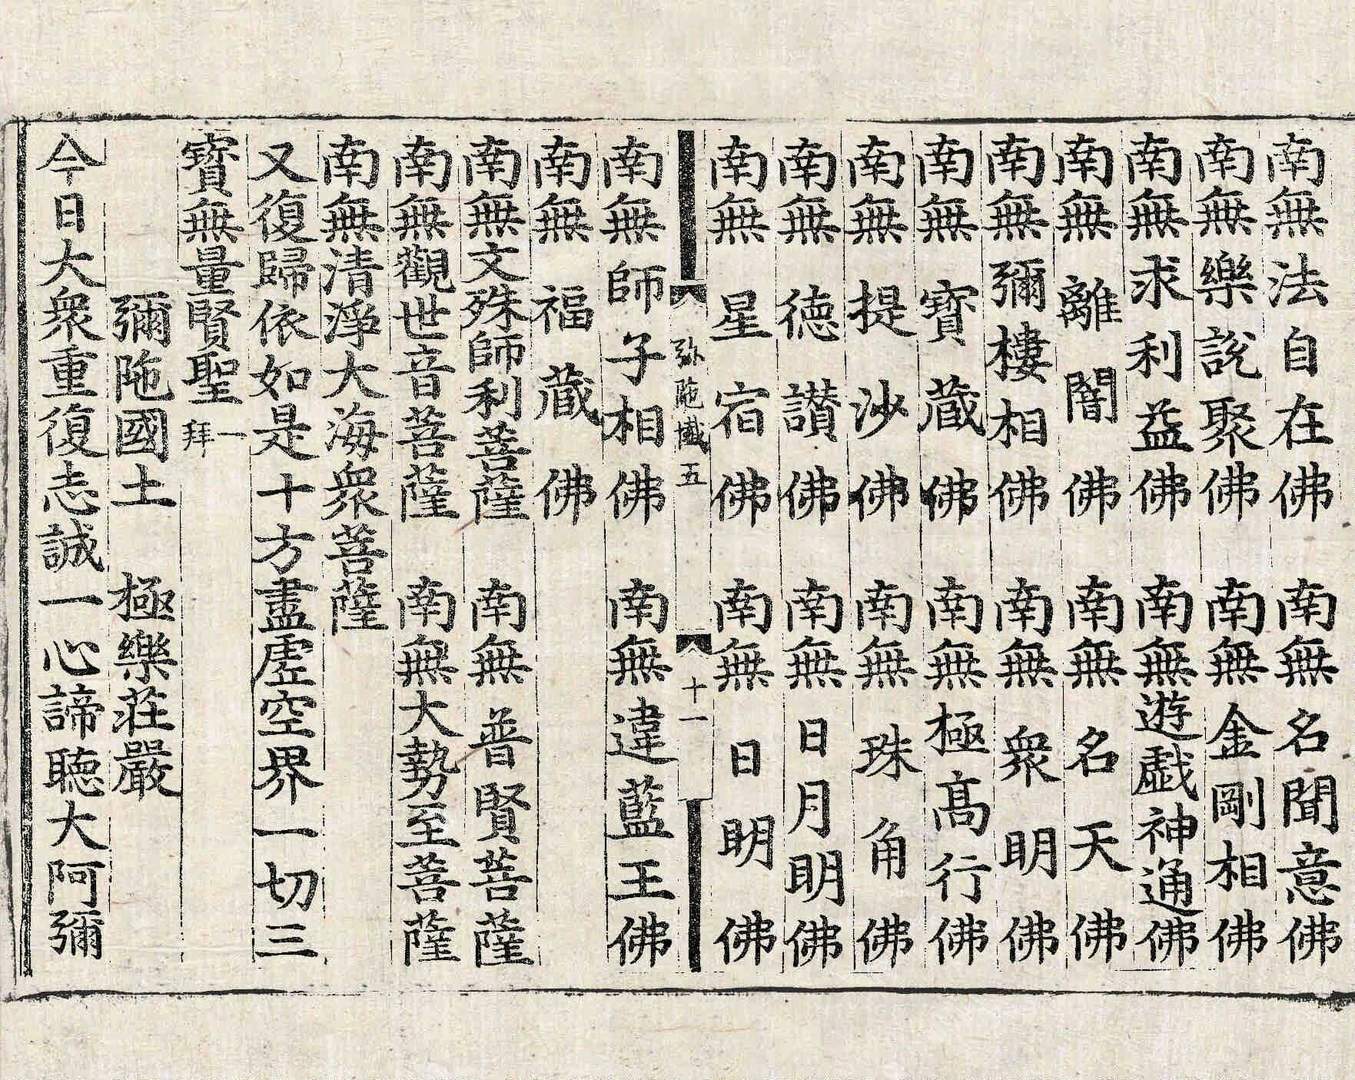 南無法自在佛　南無名聞意佛
南無樂說聚佛　南無金剛相佛
南無求利益佛　南無遊戯神通佛
南無離闇佛　南無名天佛
南無彌樓相佛　南無衆明佛
南無寶蔵佛　南無極高行佛
南無提沙佛　南無珠角佛
南無徳讃佛　南無日月明佛
南無星宿佛　南無日明佛
弥陁懴五　十一
南無師子相佛　南無違藍王佛
南無福蔵佛
南無文殊師利菩薩　南無普賢菩薩
南無觀世音菩薩　南無大勢至菩薩
南無清淨大海衆菩薩
又復歸依如是十方盡虛空界一切三
寶無量賢聖一拜
彌陁國土　極樂莊嚴
今日大衆重復志誠一心諦聽大阿彌